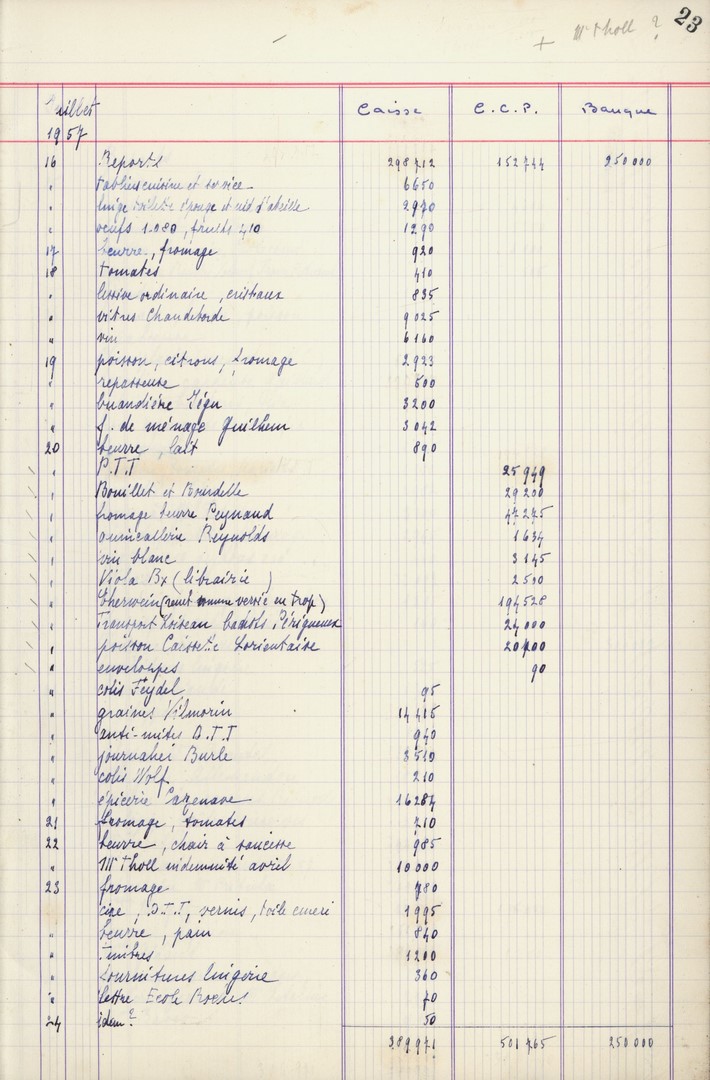 23
+ Mr Tholl ?
Juillet Caisse C.C.P. Banque
1957
16 Reports 298 712 152 744 250 000
" tabliers cuisine et service 6650
" linge toilette éponge et nid d'abeille 2970
" oeufs 1.080, fruits 410 1290
17 beurre, fromage 920
18 tomates 410
" lessive ordinaire, cristaux 835
" vitres Chandeborde 9 025
" vin 6 160
19 poisson, citrons, fromage 2 923
" repasseuse 600
" buandière Zégu 3200
" f. de ménage Guilhem 3 042
20 beurre, lait 890
" P.T.T 25 949
" Bouillet et Bourdelle 29 200
" fromage beurre Peynaud 47 275
" quincaillerie Reynolds 1 634
" vin blanc 3 145
" Viola Bx (librairie) 2 500
" (remet somme versée en trop) 194 528
" Transport Loiseau Périgueux 24 000
" poisson Lorientaise
" enveloppes 90
" colis Feydel 95
" graines Vilmorin 14 415
" anti-mites D.T.T 940
" Burle 3 510
" colis Wolf 210
" épicerie Cazenave 16 284
21 fromage, tomates 710
22 beurre, chair à saucisse 985
" Mr Tholl indemnité avril 10 000
23 fromage 780
cire, D.T.T, vernis, toile émeri 1 995
" beurre, pain 840
" Timbres 1200
" Fournitures lingerie 360
" lettre Ecole Roches 70
24 idem ? 50
389 971 501 765 250 000